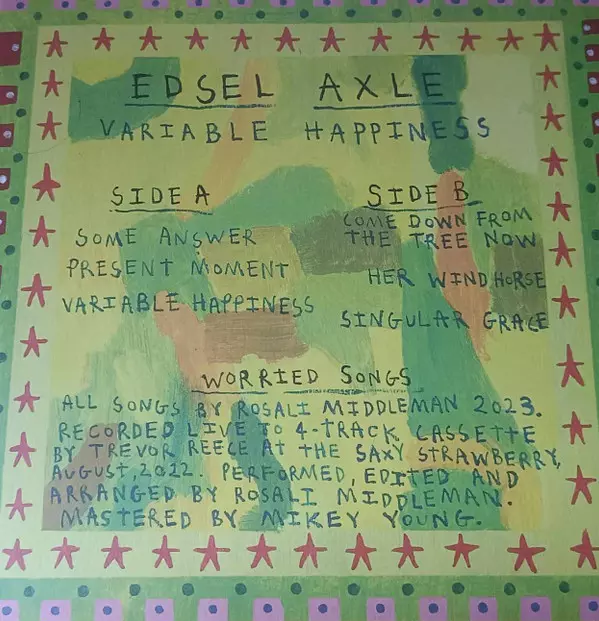 EDSEL AXLE
VARIABLE HAPPINESS
SIDE A
SOME ANSWER
PRESENT MOMENT
VARIABLE HAPPINESS
SIDE B
COME DOWN FROM
THE TREE NOW
HER WIND HORSE
SINGULAR GRACE
WORRIED SONGS
ALL SONGS BY ROSALI MIDDLEMAN 2023.
RECORDED LIVE TO 4-TRACK CASSETTE
BY TREVOR REECE AT THE SAXY STRAWBERRY,
AUGUST, 2022. PERFORMED, EDITED AND
ARRANGED BY ROSALI MIDDLEMAN.
MASTERED BY MIKEY YOUNG.